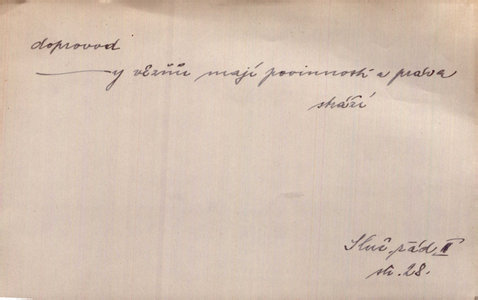 doprovod
——y vězňů mají povinnosti a práva
stráží
Služ. řád II
str. 28.